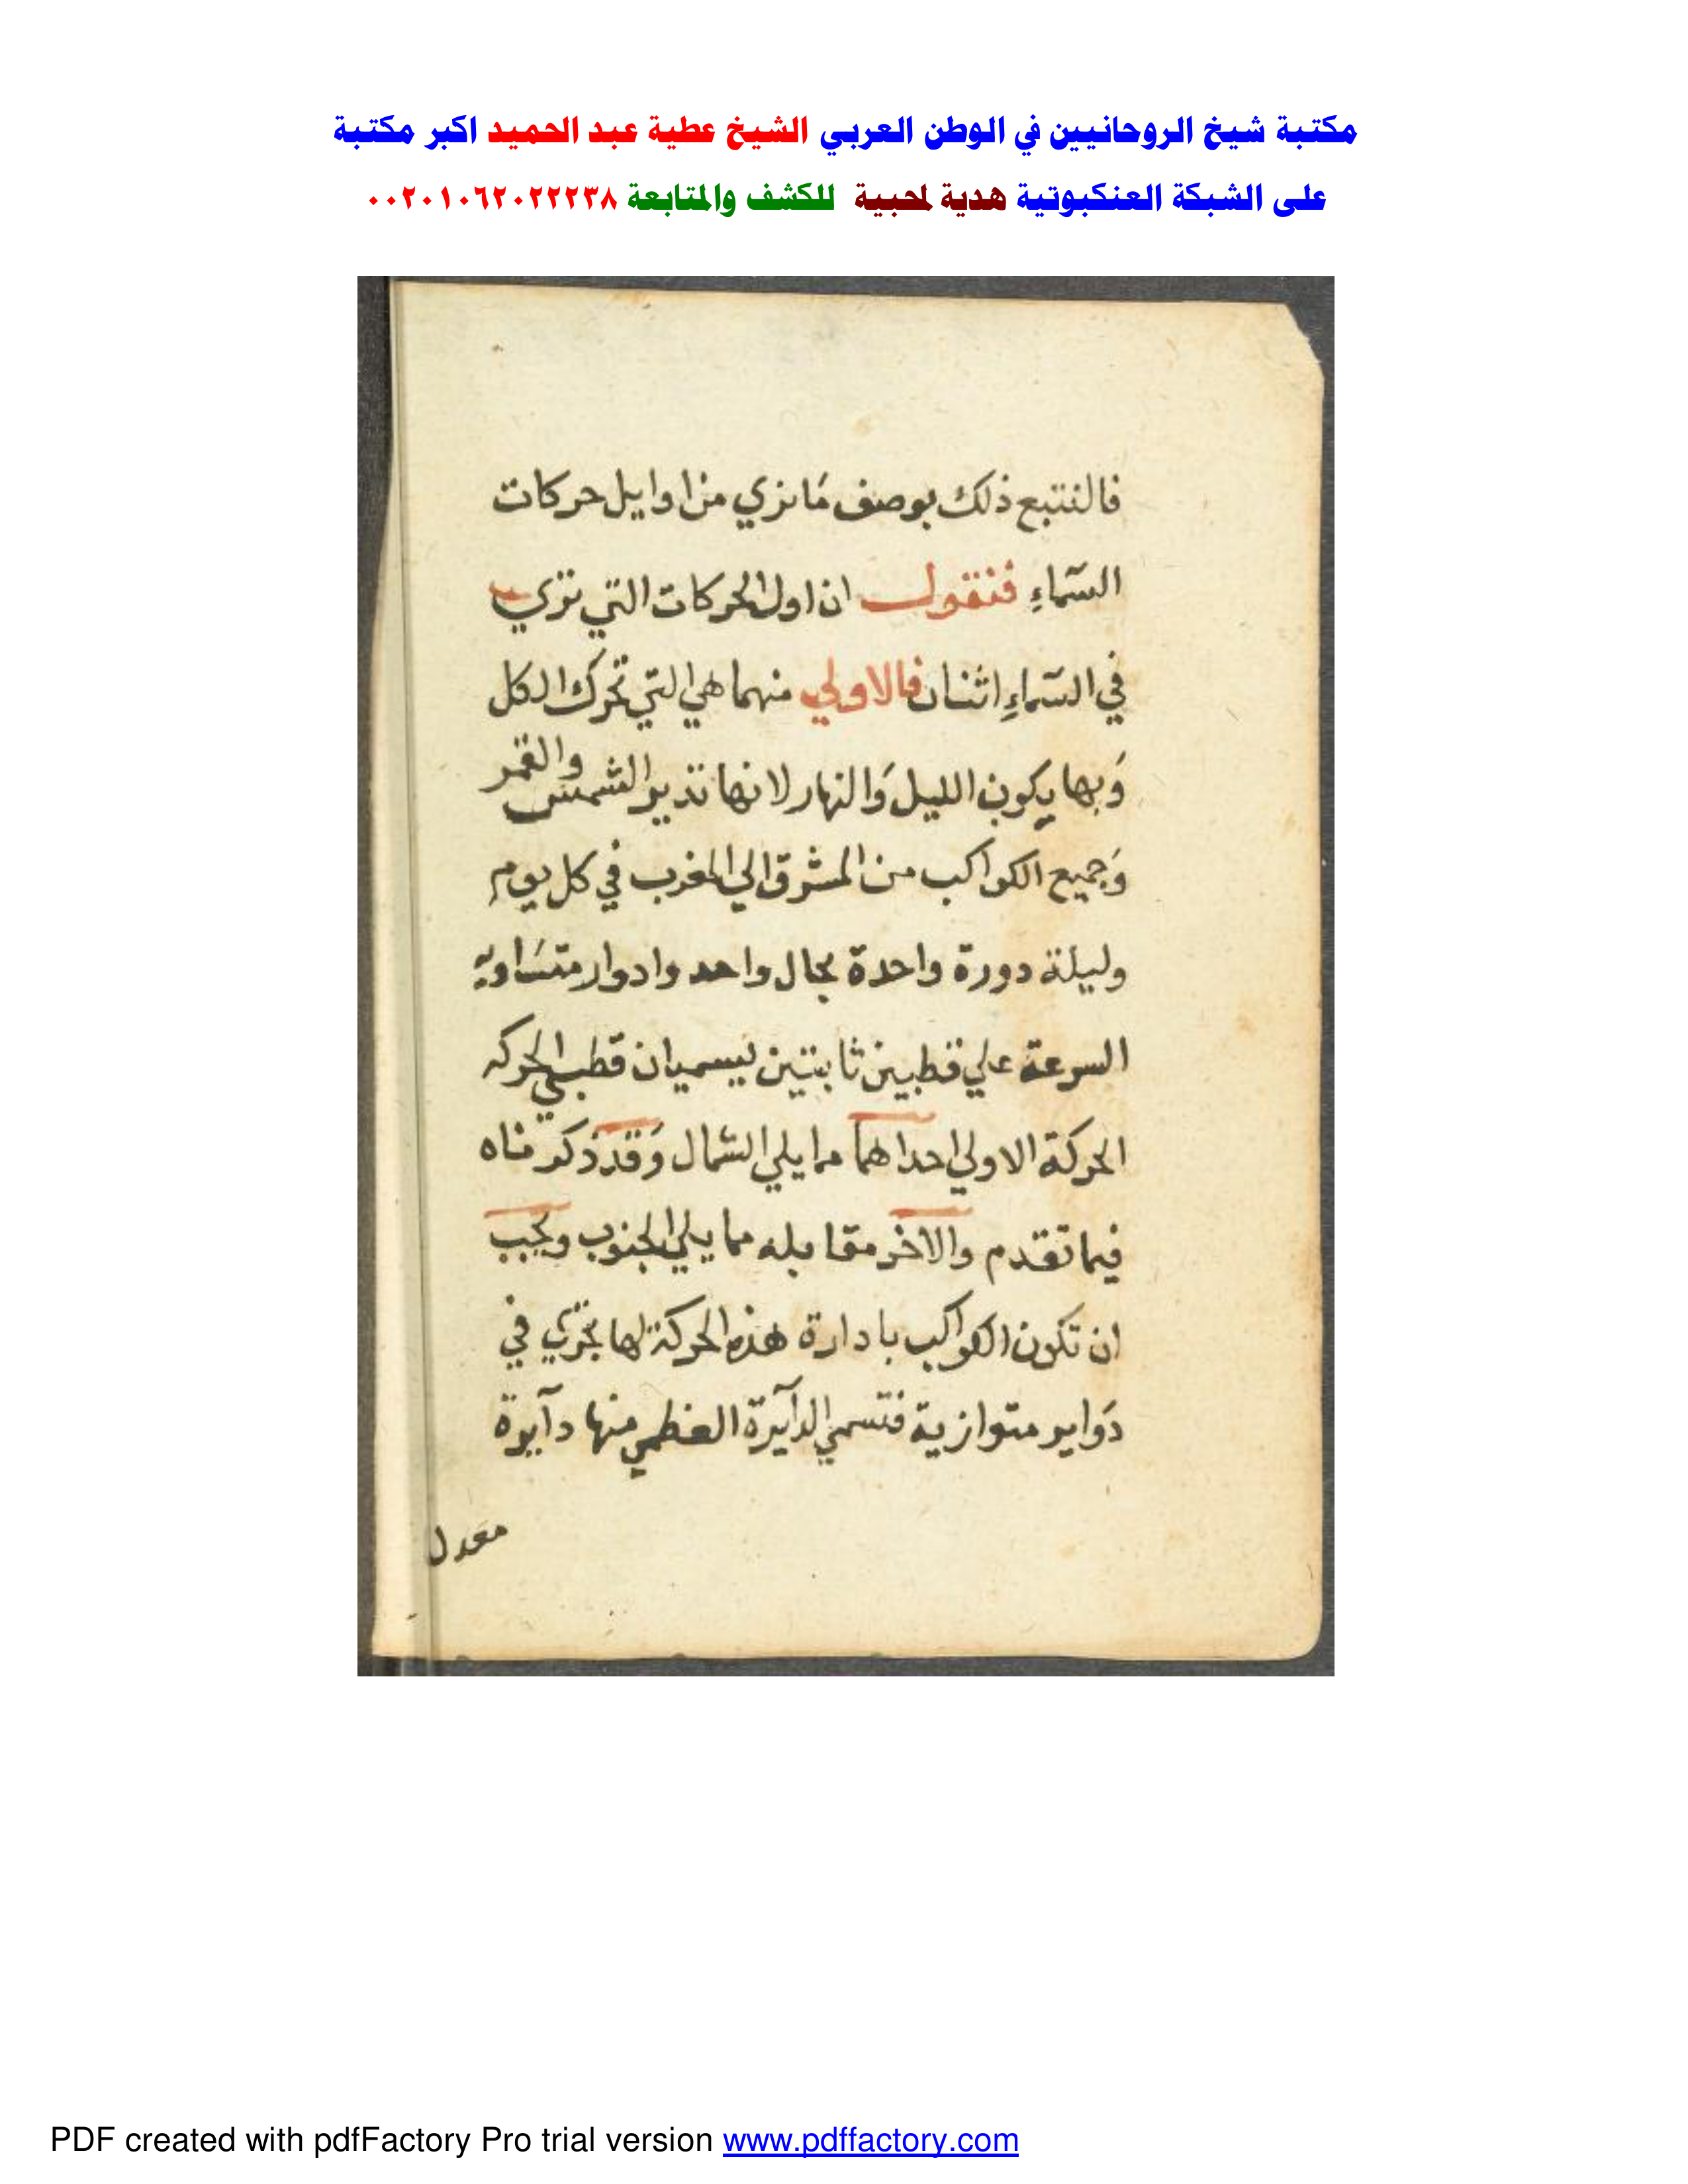 مكتبة شيخ الروحانيين في الوطن العربي الشيخ عطية عبد الحميد اكبر مكتبة
على الشبكة العنكبوتية هدية لمحبية للكشف والمتابعة ٠٠٢٠١٠٦٢٠٢٢٢٣٨
فالنتبع ذلك بوصف مَا نري من اوايل حركات
السّماءِ فنقول ان اول الحركات التي تري
في السّماءِ اثنان فالاولي منهما هي التي تحرك الكل
وَبها يكون الليل وَالنهار لانها تدير الشمس والقمر
وَجميع الكواكب من المشرق الي المغرب في كل يوم
وليلة دورة واحدة بحال واحد وادوار متسَاوية
السرعة علي قطبين ثابتين يسميان قطبي الحركه
الحركة الاولي احداهما مما يلي الشمال وَقد ذكرناه
فيما تقدم والاخر مقابله مما يلي الجنوب ويجب
ان تكون الكواكب بادارة هذه الحركة لها تجري في
دَواير متوازية فتسمي الدآيرة العظمي منها دآيرة
معدل
PDF created with pdfFactory Pro trial version www.pdffactory.com